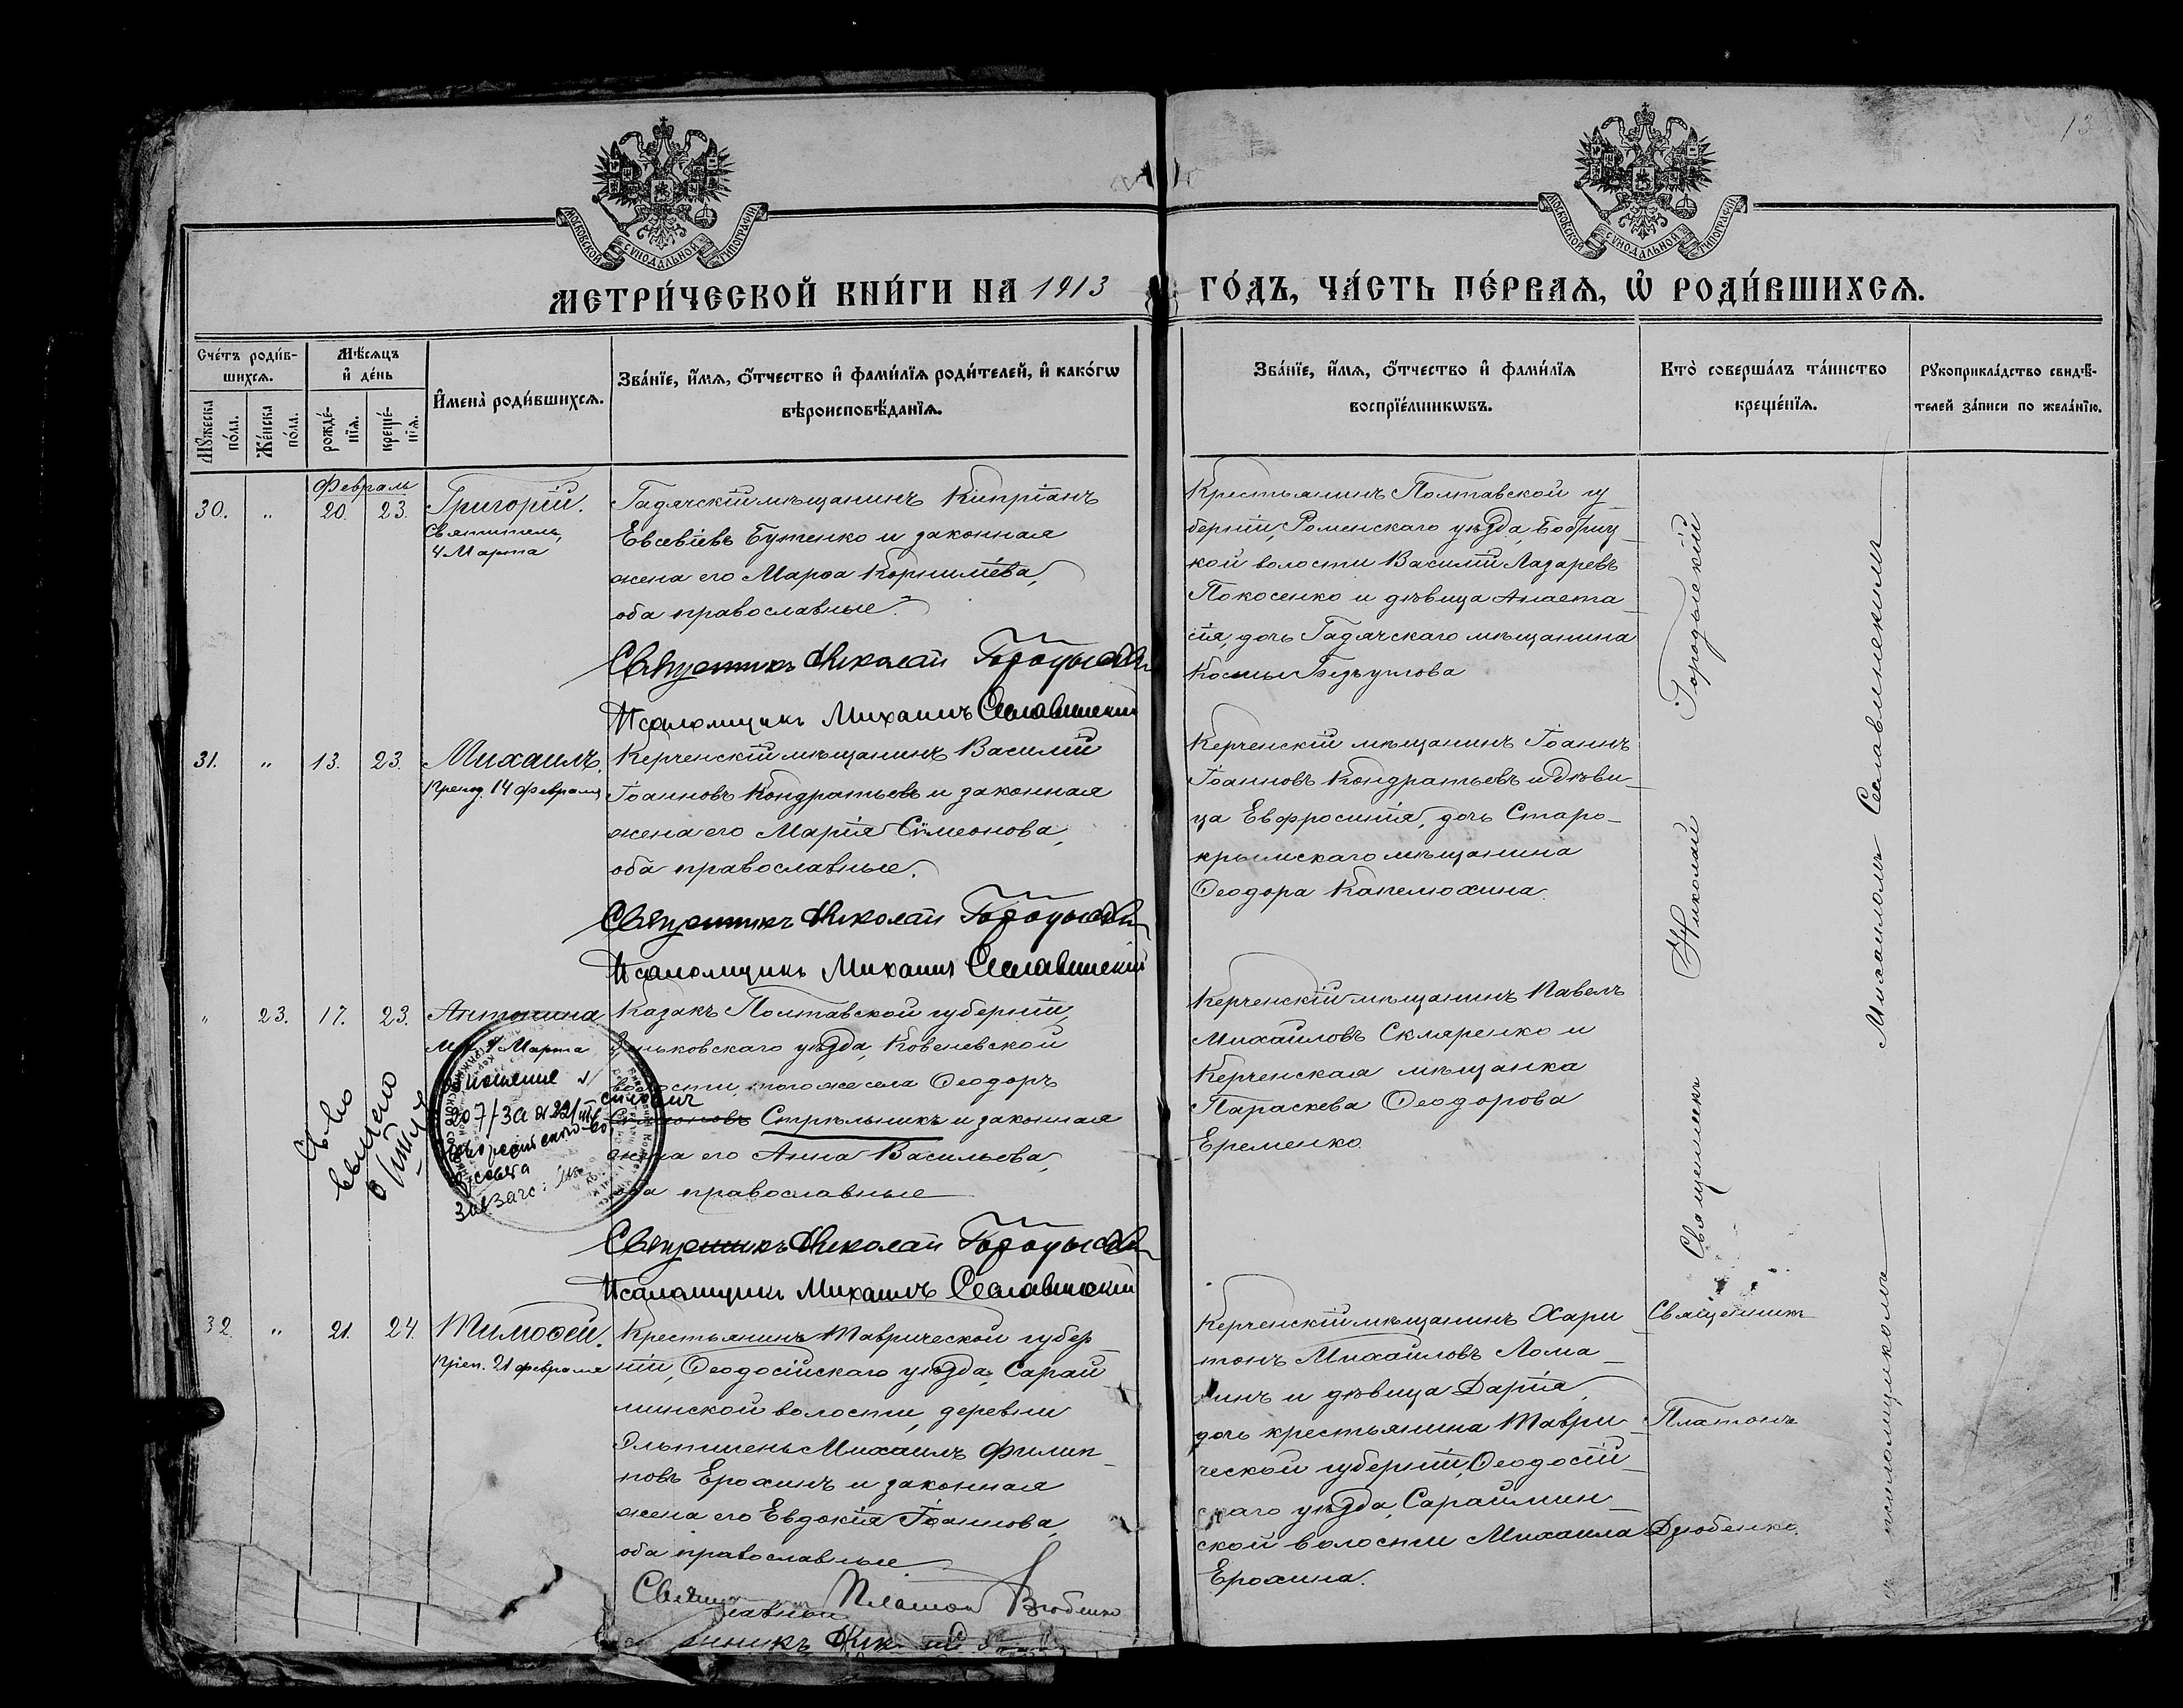 13
МОСКОВСКОЙ СѴНОДАЛЬНОЙ ТИПОГРАФІИ
МОСКОВСКОЙ СѴНОДАЛЬНОЙ ТИПОГРАФІИ
МЕТРИ́ЧЕСКОЙ КНИ́ГИ НА 1913 ГО́ДЪ, ЧА́СТЬ ПЕ́РВАѦ, Ѡ҆ РОДИ́ВШИХСѦ.
Сче́тъ роди́в-
шихсѧ.
Мꙋ́жеска по́ла.
Же́нска по́ла.
Мѣ́сѧцъ
и҆ де́нь
рожде́-
нїѧ.
креще́-
нїѧ.
И҆мена̀ роди́вшихсѧ.
Зва́нїе, и҆́мѧ, ѻ҆́тчество и҆ фами́лїѧ роди́телей, и҆ како́гѡ
вѣроисповѣ́данїѧ.
Зва́нїе, и҆́мѧ, ѻ҆́тчество и҆ фами́лїѧ
воспрїе́мникѡвъ.
Кто̀ соверша́лъ та́инство
креще́нїѧ.
Рꙋкоприкла́дство свидѣ́-
телей за́писи по жела́нїю.
Февраль
30. " 20. 23. Григорій.
Святитель,
4 Марта
Гадячскій мѣщанинъ Кипріанъ
Евсевіевъ Бутенко и законная
жена его Марѳа Корниліева,
оба православные.
Священникъ Николай Городыскій
Псаломщикъ Михаилъ Сеславинскій
Крестьянинъ Полтавской гу
берніи, Роменскаго уѣзда, Бобриц_
кой волости Василій Лазаревъ
Покосенко и дѣвица Анаста_
сія, дочь Гадячскаго мѣщанина
Космы
31. " 13. 23. Михаилъ.
Препод. 14 февраля
Керченскій мѣщанинъ Василій
Іоанновъ Кондратьевъ и законная
жена его Марія Сѵмеонова,
оба православные.
Священникъ Николай Городыскій
Псаломщикъ Михаилъ Сеславинскій
Керченскій мѣщанинъ Іоаннъ
Іоанновъ Кондратьевъ и дѣви_
ца Евфросинія, дочь Старо_
крымскаго мѣщанина
Ѳеодора Капелюхина.
" 23. 17. 23. Антонина
Марта
Казакъ Полтавской губерніи,
Зеньковскаго уѣзда, Ковалевской
волости, того же села Ѳеодоръ
Стрѣльникъ и законная
жена его Анна Васильева,
оба православные
Священникъ Николай Городыскій
Псаломщикъ Михаилъ Сеславинскій
Керченскій мѣщанинъ Павелъ
Михаиловъ Скляренко и
Керченская мѣщанка
Параскева Ѳеодорова
Еременко.
Св-во
32. " 21. 24. Тимоѳей.
Преп. 21 февраля
Крестьянинъ Таврической губер_
ніи, Ѳеодосійскаго уѣзда, Сарай
минской волости, деревни
Михаилъ Филип_
повъ Ерохинъ и законная
жена его Евдокія Іоаннова,
оба православные
Платонъ Дзюбенко
Керченскій мѣщанинъ Хари
тонъ Михаиловъ Лома_
кинъ и дѣвица Дарія,
дочь крестьянина Таври_
ческой губерніи, Ѳеодосій_
скаго уѣзда, Сараймин_
ской волости Михаила
Ерохина.
Священникъ Николай Городыскій
Священникъ
Платонъ
Дзюбенко.
съ псаломщикомъ Михаиломъ Сеславинскимъ